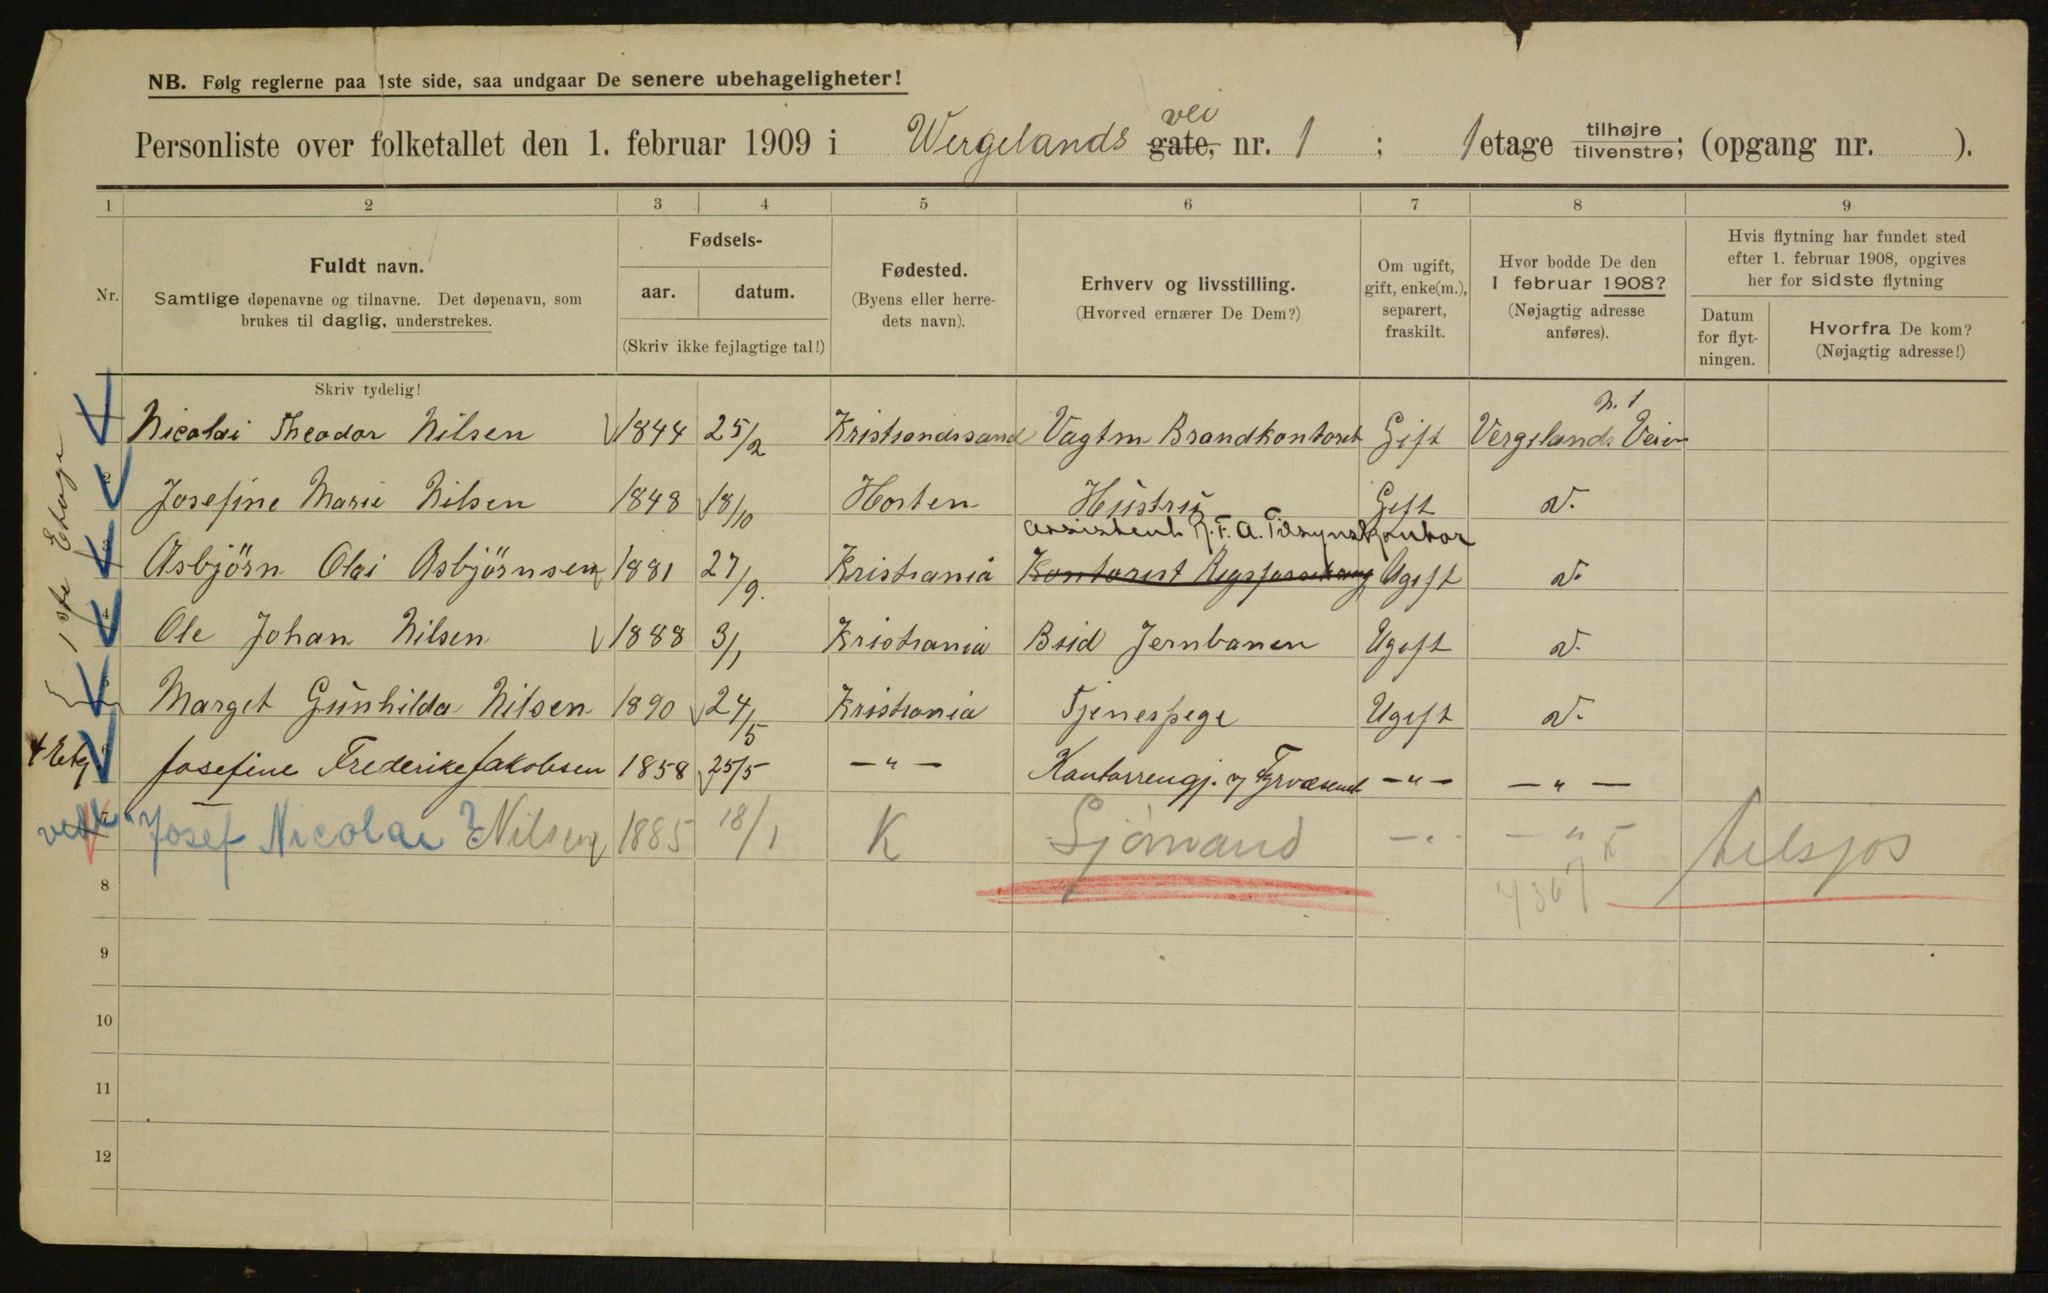 NB. Følg reglerne paa 1ste side, saa undgaar De senere ubehageligheter!
vei
Personliste over folketallet den 1. februar 1909 i Wergelands gate, nr. 1 ; 1 etage tilhøjre tilvenstre; (opgang nr. ).
1 2 3 4 5 6 7 8 9
Nr.
Fuldt navn.
Samtlige døpenavne og tilnavne. Det døpenavn, som
brukes til daglig, understrekes.
Fødsels-
aar. datum.
(Skriv ikke fejlagtige tal!)
Fødested.
(Byens eller herre-
dets navn).
Erhverv og livsstilling.
(Hvorved ernærer De Dem?)
Om ugift,
gift, enke(m.),
separert,
fraskilt.
Hvor bodde De den
1 februar 1908?
(Nøjagtig adresse
anføres).
Hvis flytning har fundet sted
efter 1. februar 1908, opgives
her for sidste flytning
Datum
for flyt-
ningen.
Hvorfra De kom?
(Nøjagtig adresse!)
Skriv tydelig!
1ste Etage
N. 1
Nicolai Theodor Nilsen 1844 25/2 Kristiandssand Vagtm Brandkontoret Gift Vergelands Veien
Josefine Marie Nilsen 1848 18/10 Horten Hüstrü Gift d.
Assistent R. F. A. Tilsynskontor
Asbjörn Olai Asbjörnsen 1881 27/9. Kristiania Kontorist Rigsforsikring Ugift d.
4 Ole Johan Nilsen 1888 3/1 Kristiania Bsid Jernbanen Ugift d.
Marget Günhilda Nilsen 1890 24/5 Kristiania Tjenespige Ugift d.
4 Etg. Josefine Frederike Jakobsen 1858 25/5 — " — Kontorrengj. v/ Fyrvæsenet — " — — " —
Josef Nicolai Nilsen 1885 18/1 K Sjömand — " — — " — tilsjøs
8
9
10
11
12